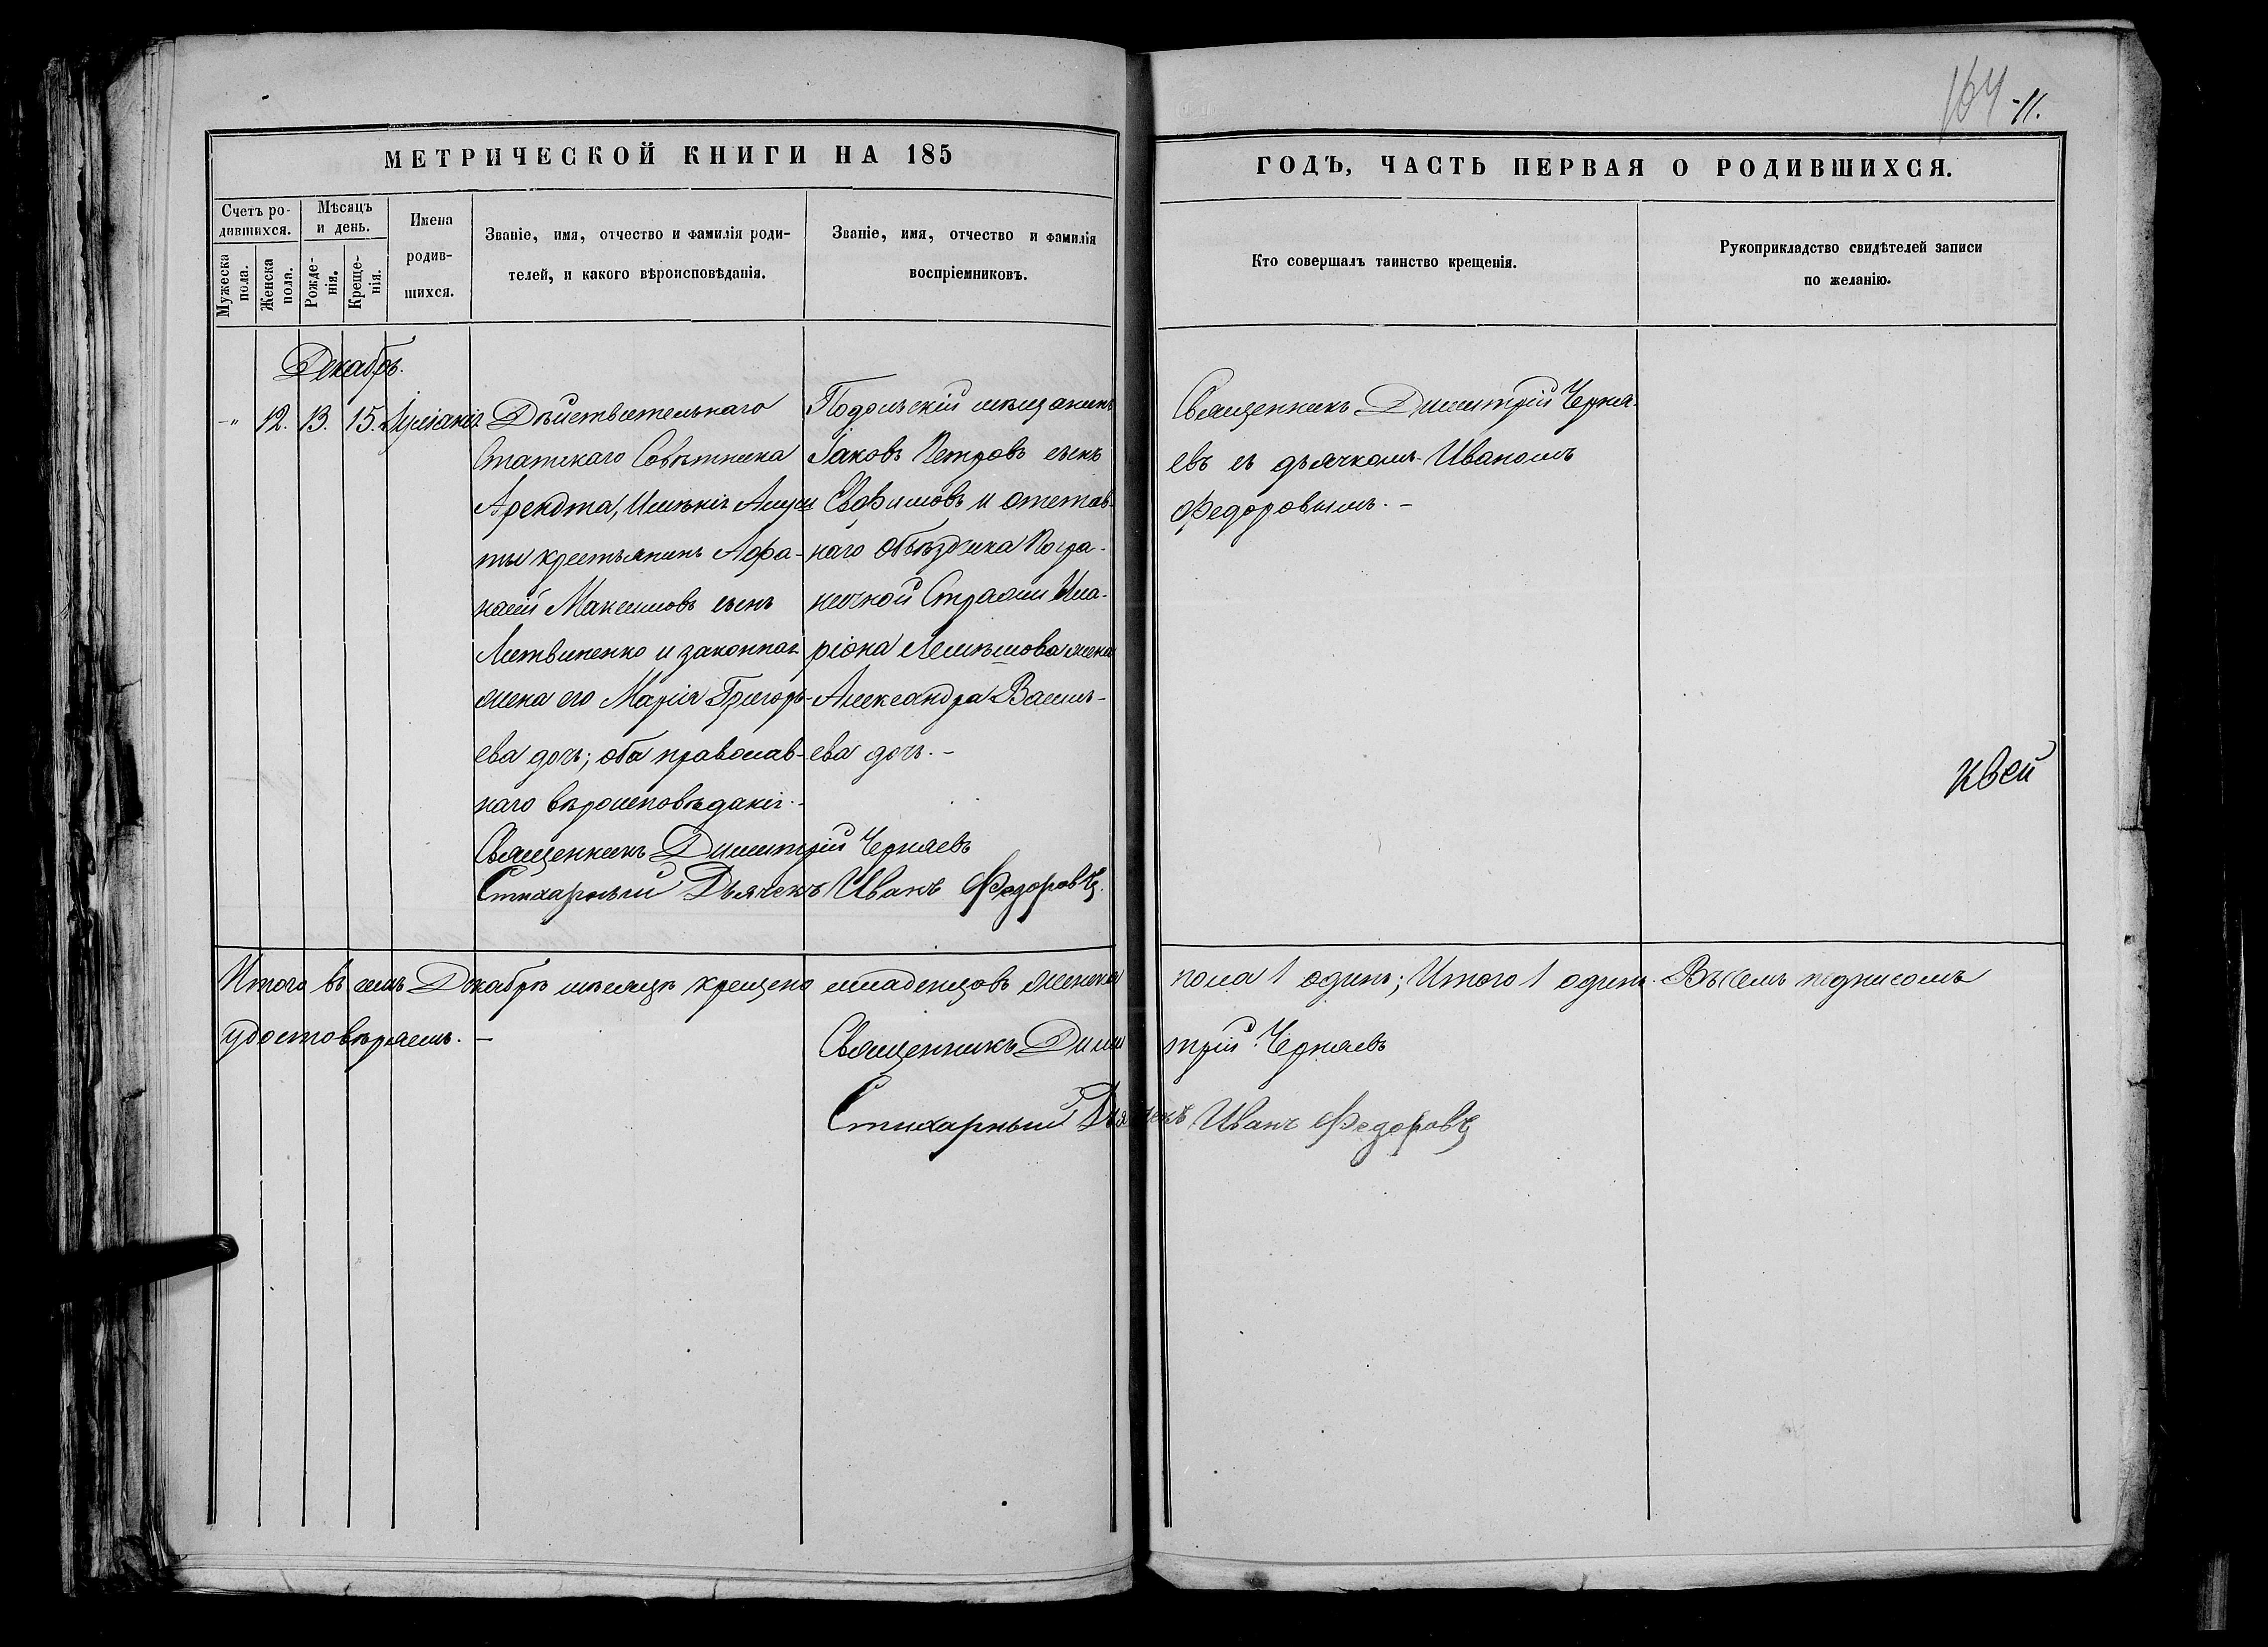 164 -11.
МЕТРИЧЕСКОЙ КНИГИ НА 185
ГОДЪ, ЧАСТЬ ПЕРВАЯ О РОДИВШИХСЯ.
Счетъ ро-
дившихся.
Мужеска
пола.
Женска
пола.
Мѣсяцъ
и день.
Рожде-
нія.
Креще-
нія.
Имена
родив-
шихся.
Званіе, имя, отчество и фамилія роди-
телей, и какого вѣроисповѣданія.
Званіе, имя, отчество и фамилія
воспріемниковъ.
Кто совершалъ таинство крещенія.
Рукоприкладство свидѣтелей записи
по желанію.
Декабрь.
-" 12. 13. 15. Іуліанія
Дѣйствительнаго
Статскаго Совѣтника
Арендта, Имѣнія Алуш
ты крестьянинъ Афа-
насій Максимовъ сынъ
Литвиненко и законная
жена его Марія Григорь-
ева дочь; оба православ-
наго вѣроисповѣданія.-
Подольскій мѣщанинъ
Іаковъ Петровъ сынъ
Евфимовъ и отстав-
наго Объѣздчика Погра-
ничной Стражи Ила-
ріона Лемѣшова жена
Александра Василь-
ева дочь.-
Священникъ Димитрій Черня-
евъ съ дьячкомъ Иваномъ
Федоровымъ.-
Священникъ Димитрій Черняевъ
Стихарный Дьячекъ Иванъ Федоровъ.
квей
Итого въ семъ Декабрѣ мѣсяцѣ крещено младенцовъ женска пола 1 одинъ; Итого 1 одинъ. Въ семъ подписомъ
удостовѣряемъ.-
Священникъ Димитрій Черняевъ
Стихарный Дьячекъ Иванъ Федоровъ